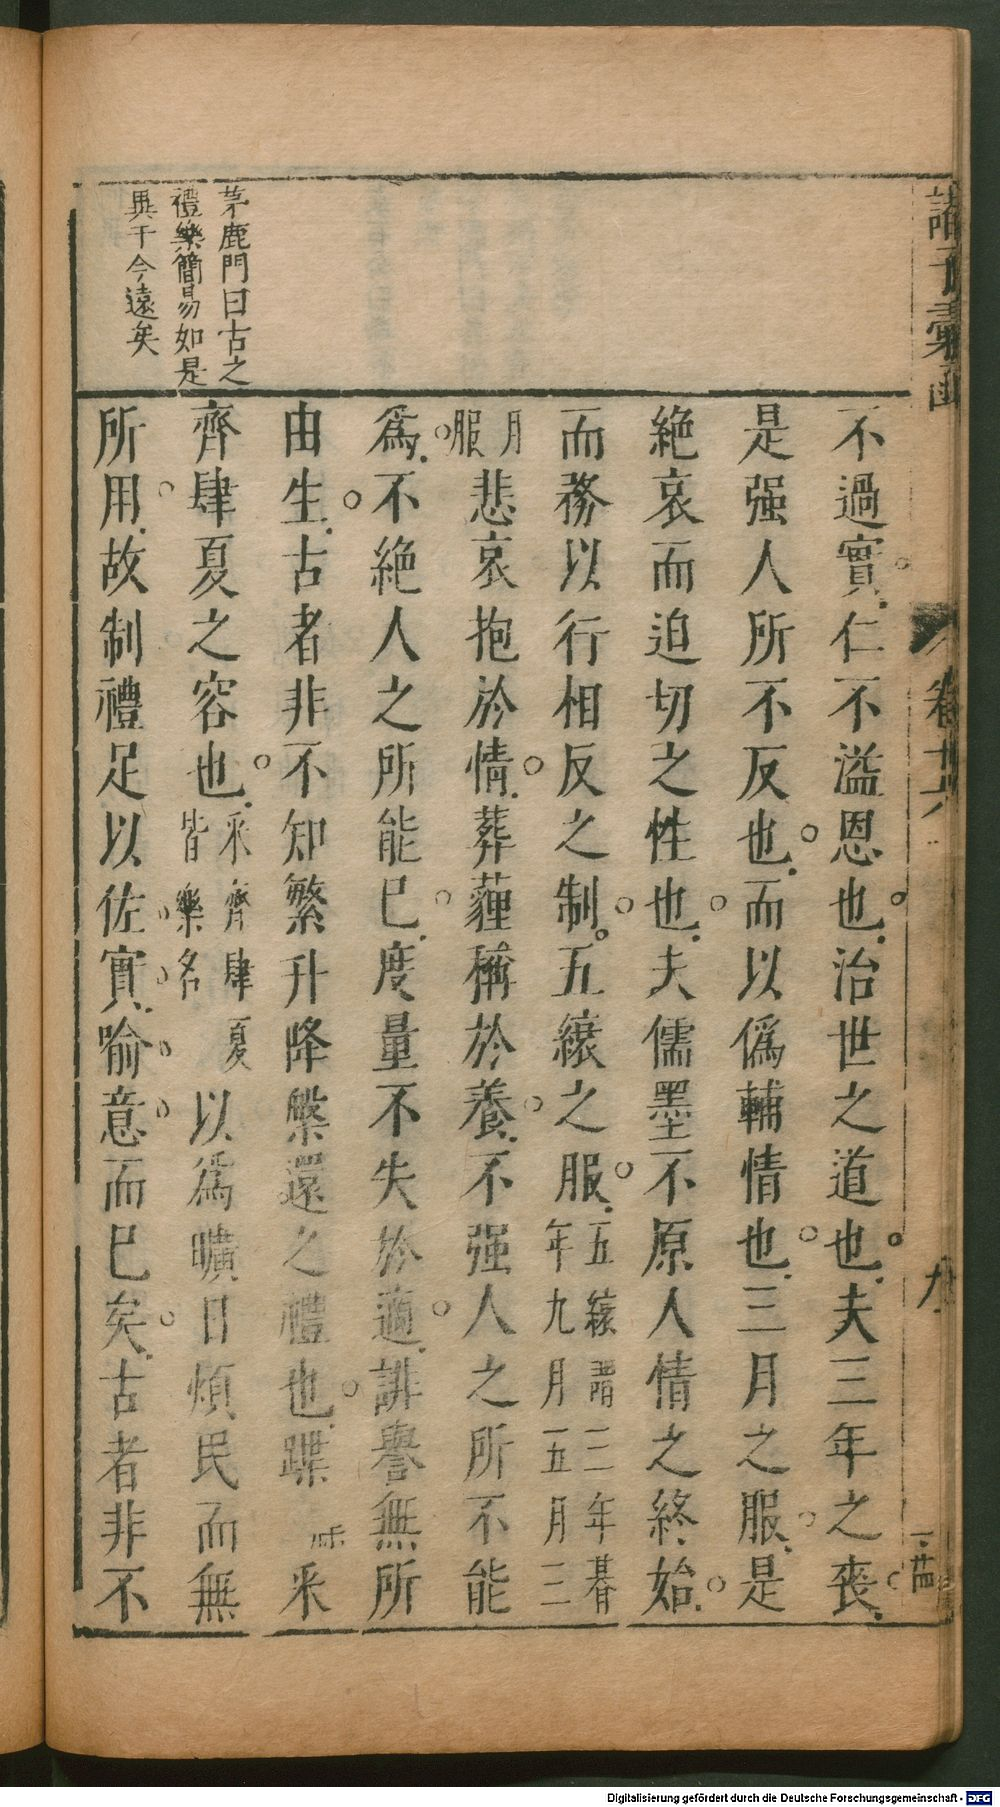 諸子彙函
卷廿六
九
不過實仁不溢恩也治世之道也夫三年之喪
是强人所不反也而以僞輔情也三月之服是
絶哀而迫切之性也夫儒墨不原人情之終始
而務以行相反之制五縗之服五縗謂三年朞年九月五月三
月服悲哀抱於情葬薶稱於養不强人之所不能
爲不絶人之所能已度量不失於適誹譽無所
由生古者非不知繁升降槃還之禮也蹀采
齊肆夏之容也采齊肆夏皆樂名以爲曠日煩民而無
所用故制禮足以佐實喻意而已矣古者非不
茅鹿門曰古之
禮樂簡易如是
異于今遠矣
Digitalisierung gefördert durch die Deutsche Forschungsgemeinschaft - DFG